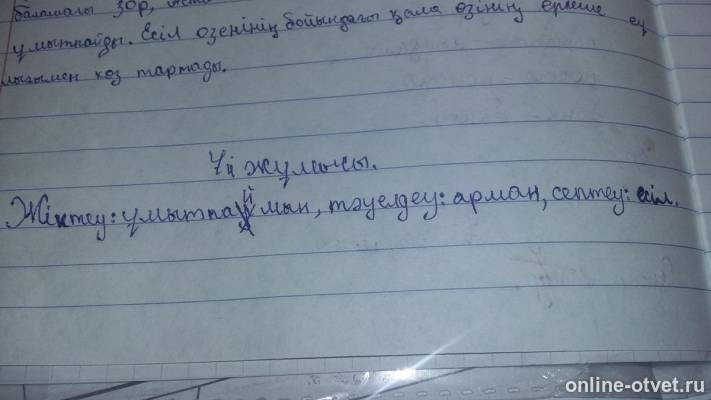 болашағы зор,
ұмытпайды. Есіл өзенінің бойындағы қала өзінің ерекше
көз тартады.
Үй жұмысы.
Жіктеу: ұмытпаймын, тәуелдеу: арман, септеу: есіл.
online-otvet.ru